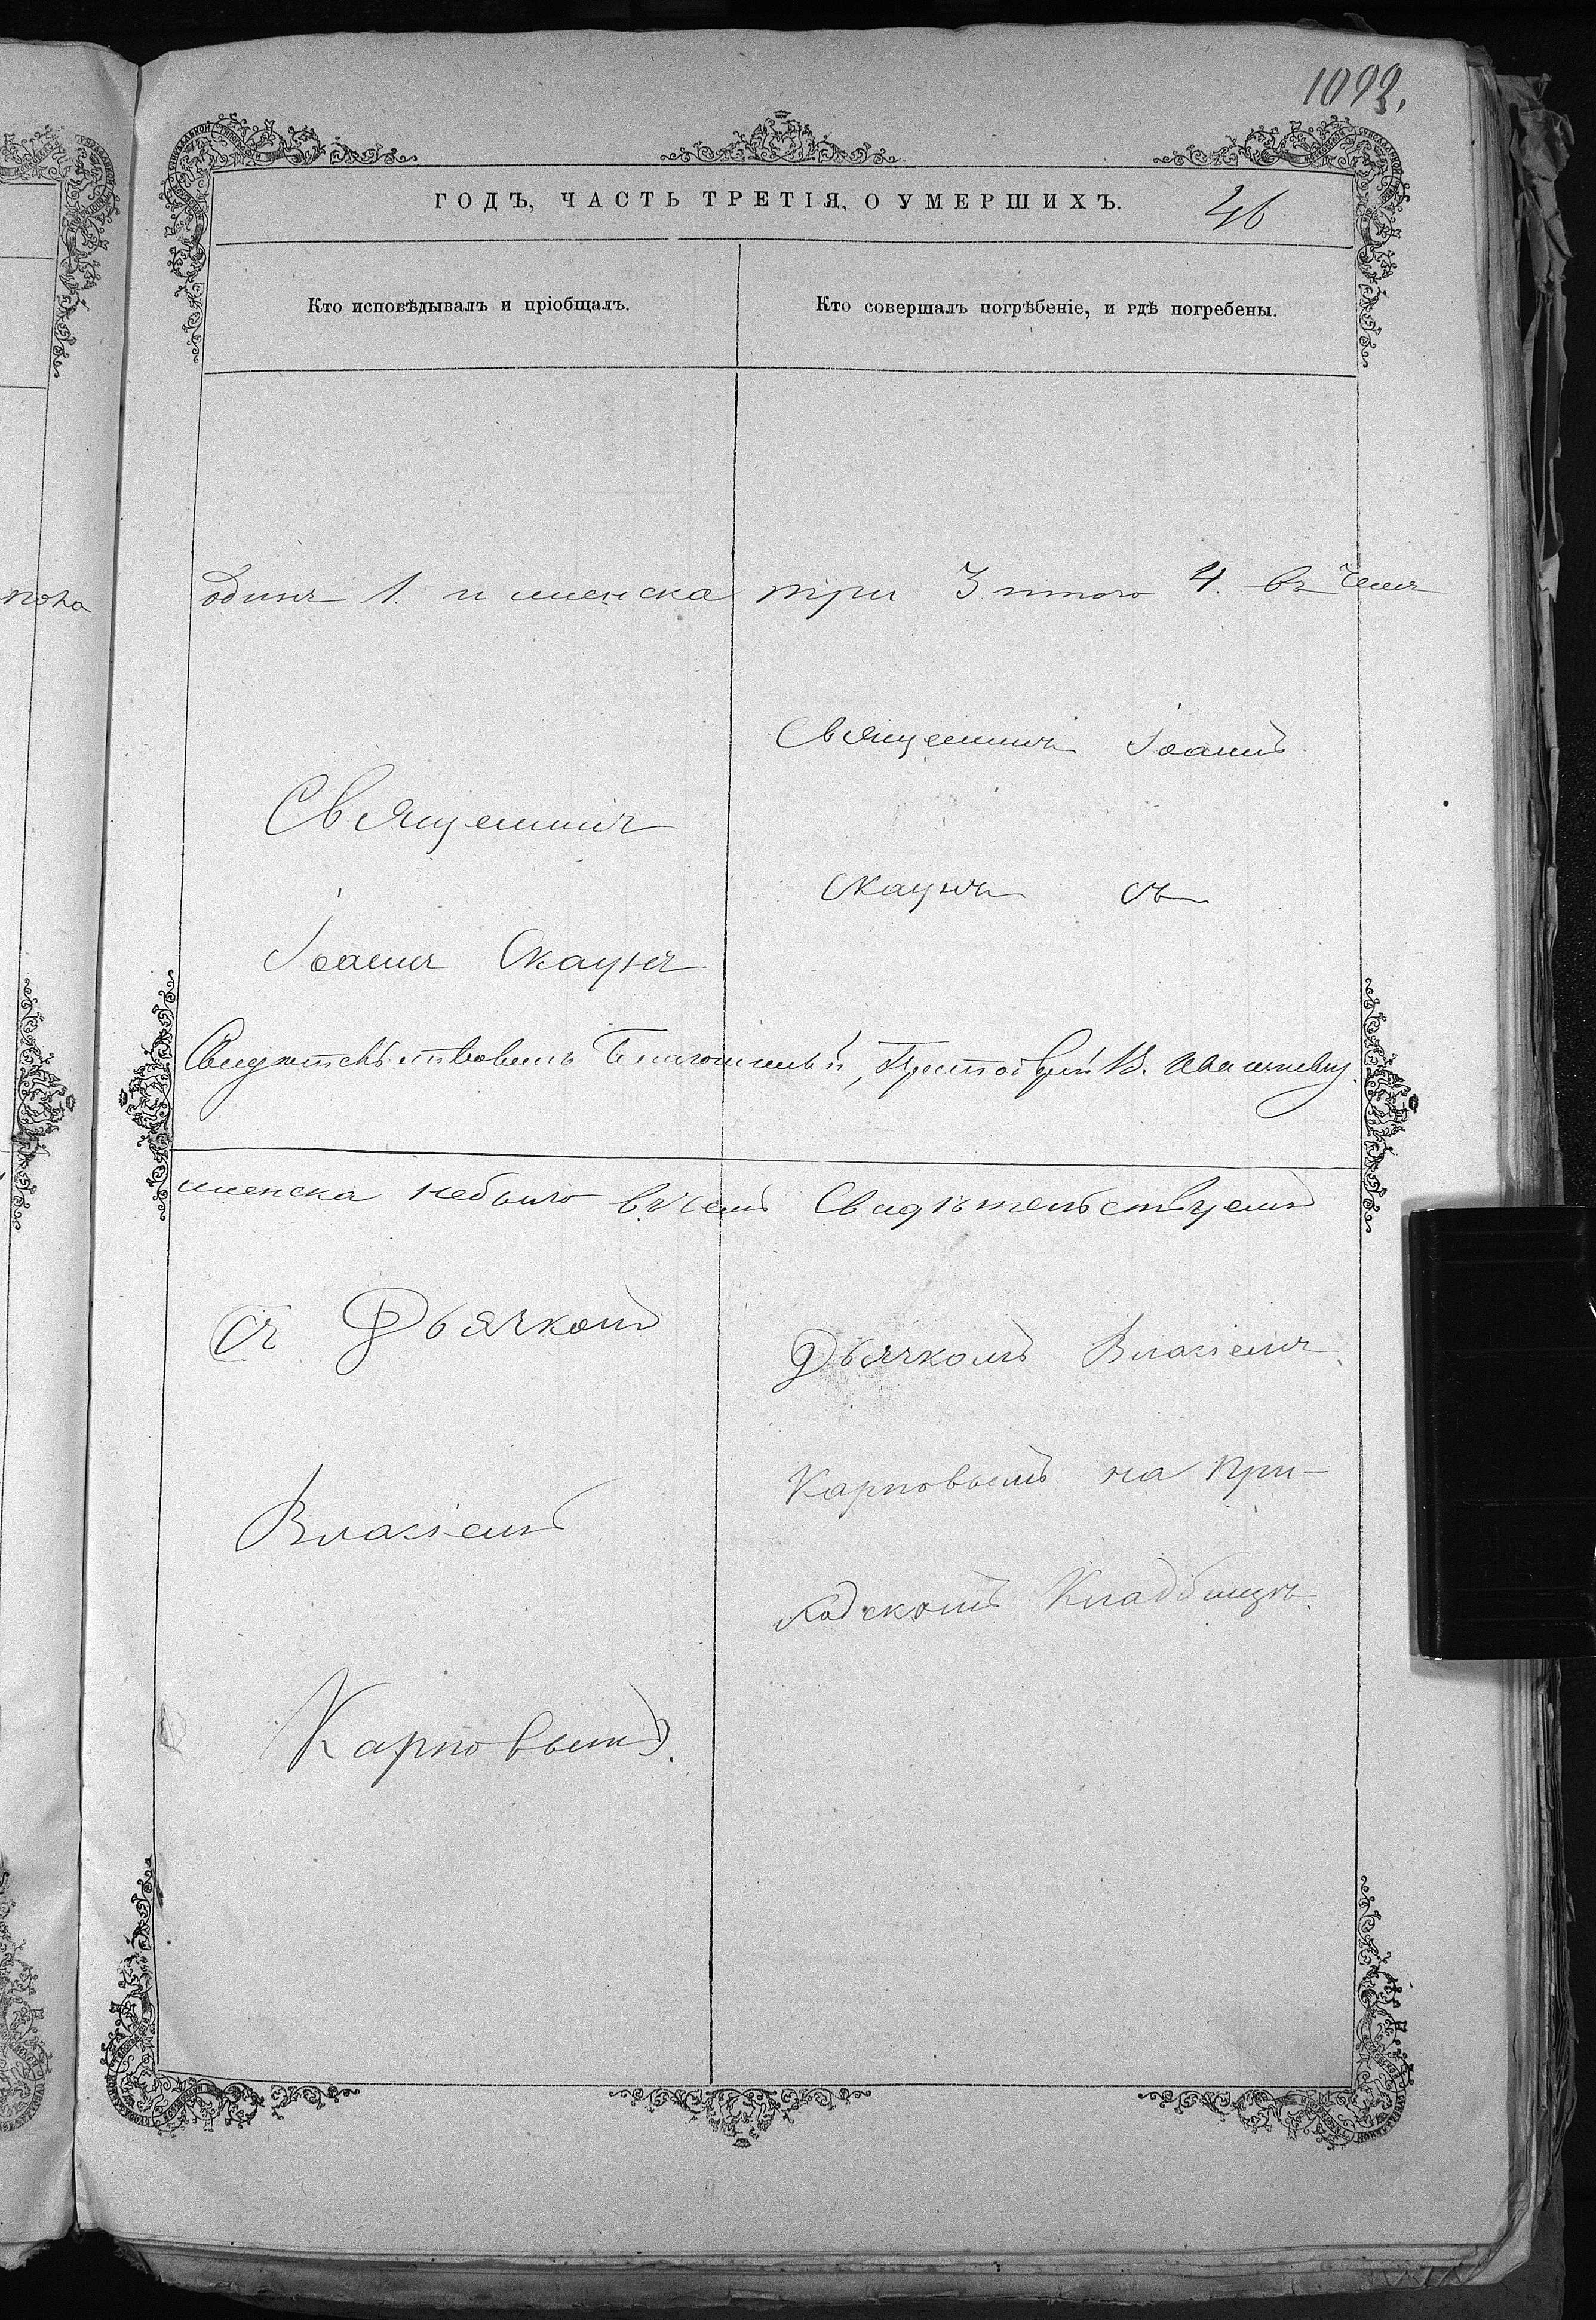 1093.
ГОДЪ, ЧАСТЬ ТРЕТІЯ, О УМЕРШИХЪ.
46
Кто исповѣдывалъ и пріобщалъ.
Кто совершалъ погрѣбеніе, и гдѣ погребены.
одинъ 1. и женска три 3 итого 4. въ чемъ
Священникъ
Іоаннъ Скаунъ
Священникъ Іоаннъ
Скаунъ съ
Свидѣтельствовалъ Благочинный, В.
женска небыло въ чемъ Свидѣтельствуемъ
Съ Дьячкомъ
Власіемъ
Карповымъ.
Дьячкомъ Власіемъ
Карповымъ на При-
ходскомъ Кладбищѣ.